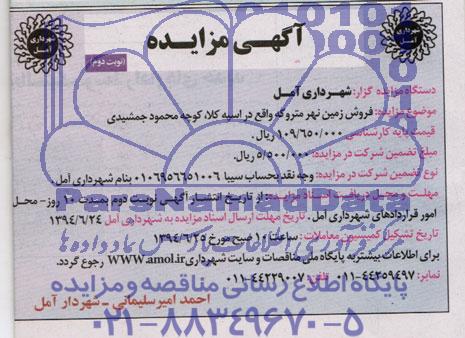 آگهی مزایده
(نوبت دوم)
دستگاه مزایده گزار: شهرداری آمل
موضوع مزایده: فروش زمین نهر متروکه واقع در اسپه کلا، کوچه محمود جمشیدی
قیمت پایه کارشناسی: ۱۰۹/۶۵۰/۰۰۰ ریال.
مبلغ تضمین شرکت در مزایده: ۵/۵۰۰/۰۰۰ ریال.
نوع تضمین شرکت در مزایده: وجه نقد بحساب سیبا ۰۱۰۶۹۵۶۶۵۱۰۰۶ بنام شهرداری آمل.
مهلت و محل دریافت اسناد مزایده: از تاریخ انتشار آگهی نوبت دوم بمدت ۱۰ روز - محل
امور قراردادهای شهرداری آمل. تاریخ مهلت ارسال اسناد مزایده به شهرداری آمل ۱۳۹۴/۶/۲۴
تاریخ تشکیل کمیسیون معاملات: ساعت ۱۰ صبح مورخ ۱۳۹۴/۶/۲۵
برای اطلاعات بیشتر به پایگاه ملی مناقصات و سایت شهرداری www.amol.ir رجوع گردد.
نمابر: ۴۴۲۵۹۴۹۷-۰۱۱ تلفن: ۴۴۲۲۹۰۰۷-۰۱۱
احمد امیرسلیمانی - شهردار آمل
پایگاه اطلاع رسانی مناقصه و مزایده
۰۲۱-۸۸۳۴۹۶۷۰-۵